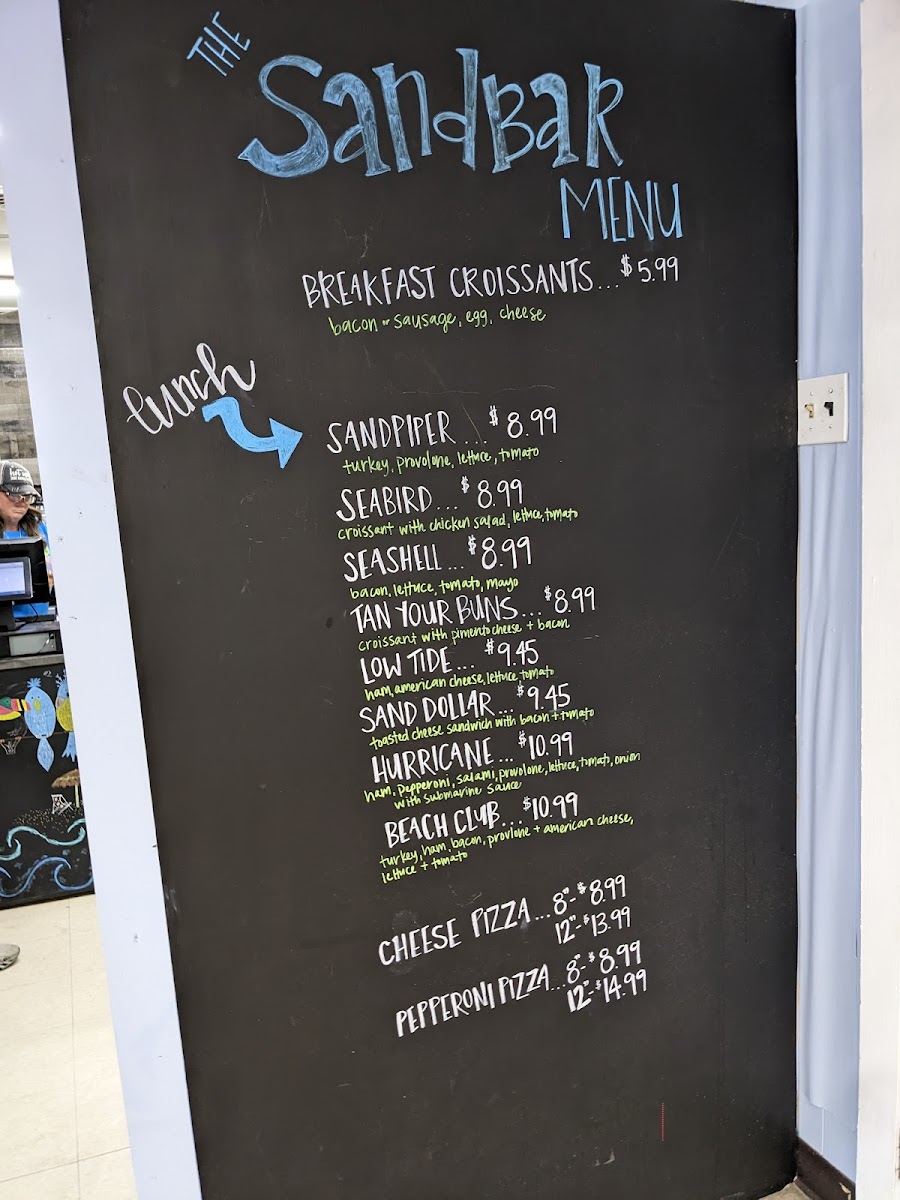 THE
SandBaR
MENU
BREAKFAST CROISSANTS...$5.99
bacon or sausage, egg, cheese
lunch
SANDPIPER....$8.99
turkey, provolone, lettuce, tomato
SEABIRD...$8.99
croissant with chicken salad, lettuce, tomato
SEASHELL...$8.99
bacon, lettuce, tomato, mayo
TAN YOUR BUNS...$8.99
croissant with pimento cheese + bacon
LOW TIDE...$9.45
ham, american cheese, lettuce, tomato
SAND DOLLAR...$9.45
toasted cheese sandwich with bacon + tomato
HURRICANE...$10.99
ham, pepperoni, salami, provolone, lettuce, tomato, onion
with submarine sauce
BEACH CLUB...$10.99
turkey, ham, bacon, provlone + american cheese,
lettuce + tomato
CHEESE PIZZA...8"-$8.99
12"-$13.99
PEPPERONI PIZZA...8"-$8.99
12"-$14.99